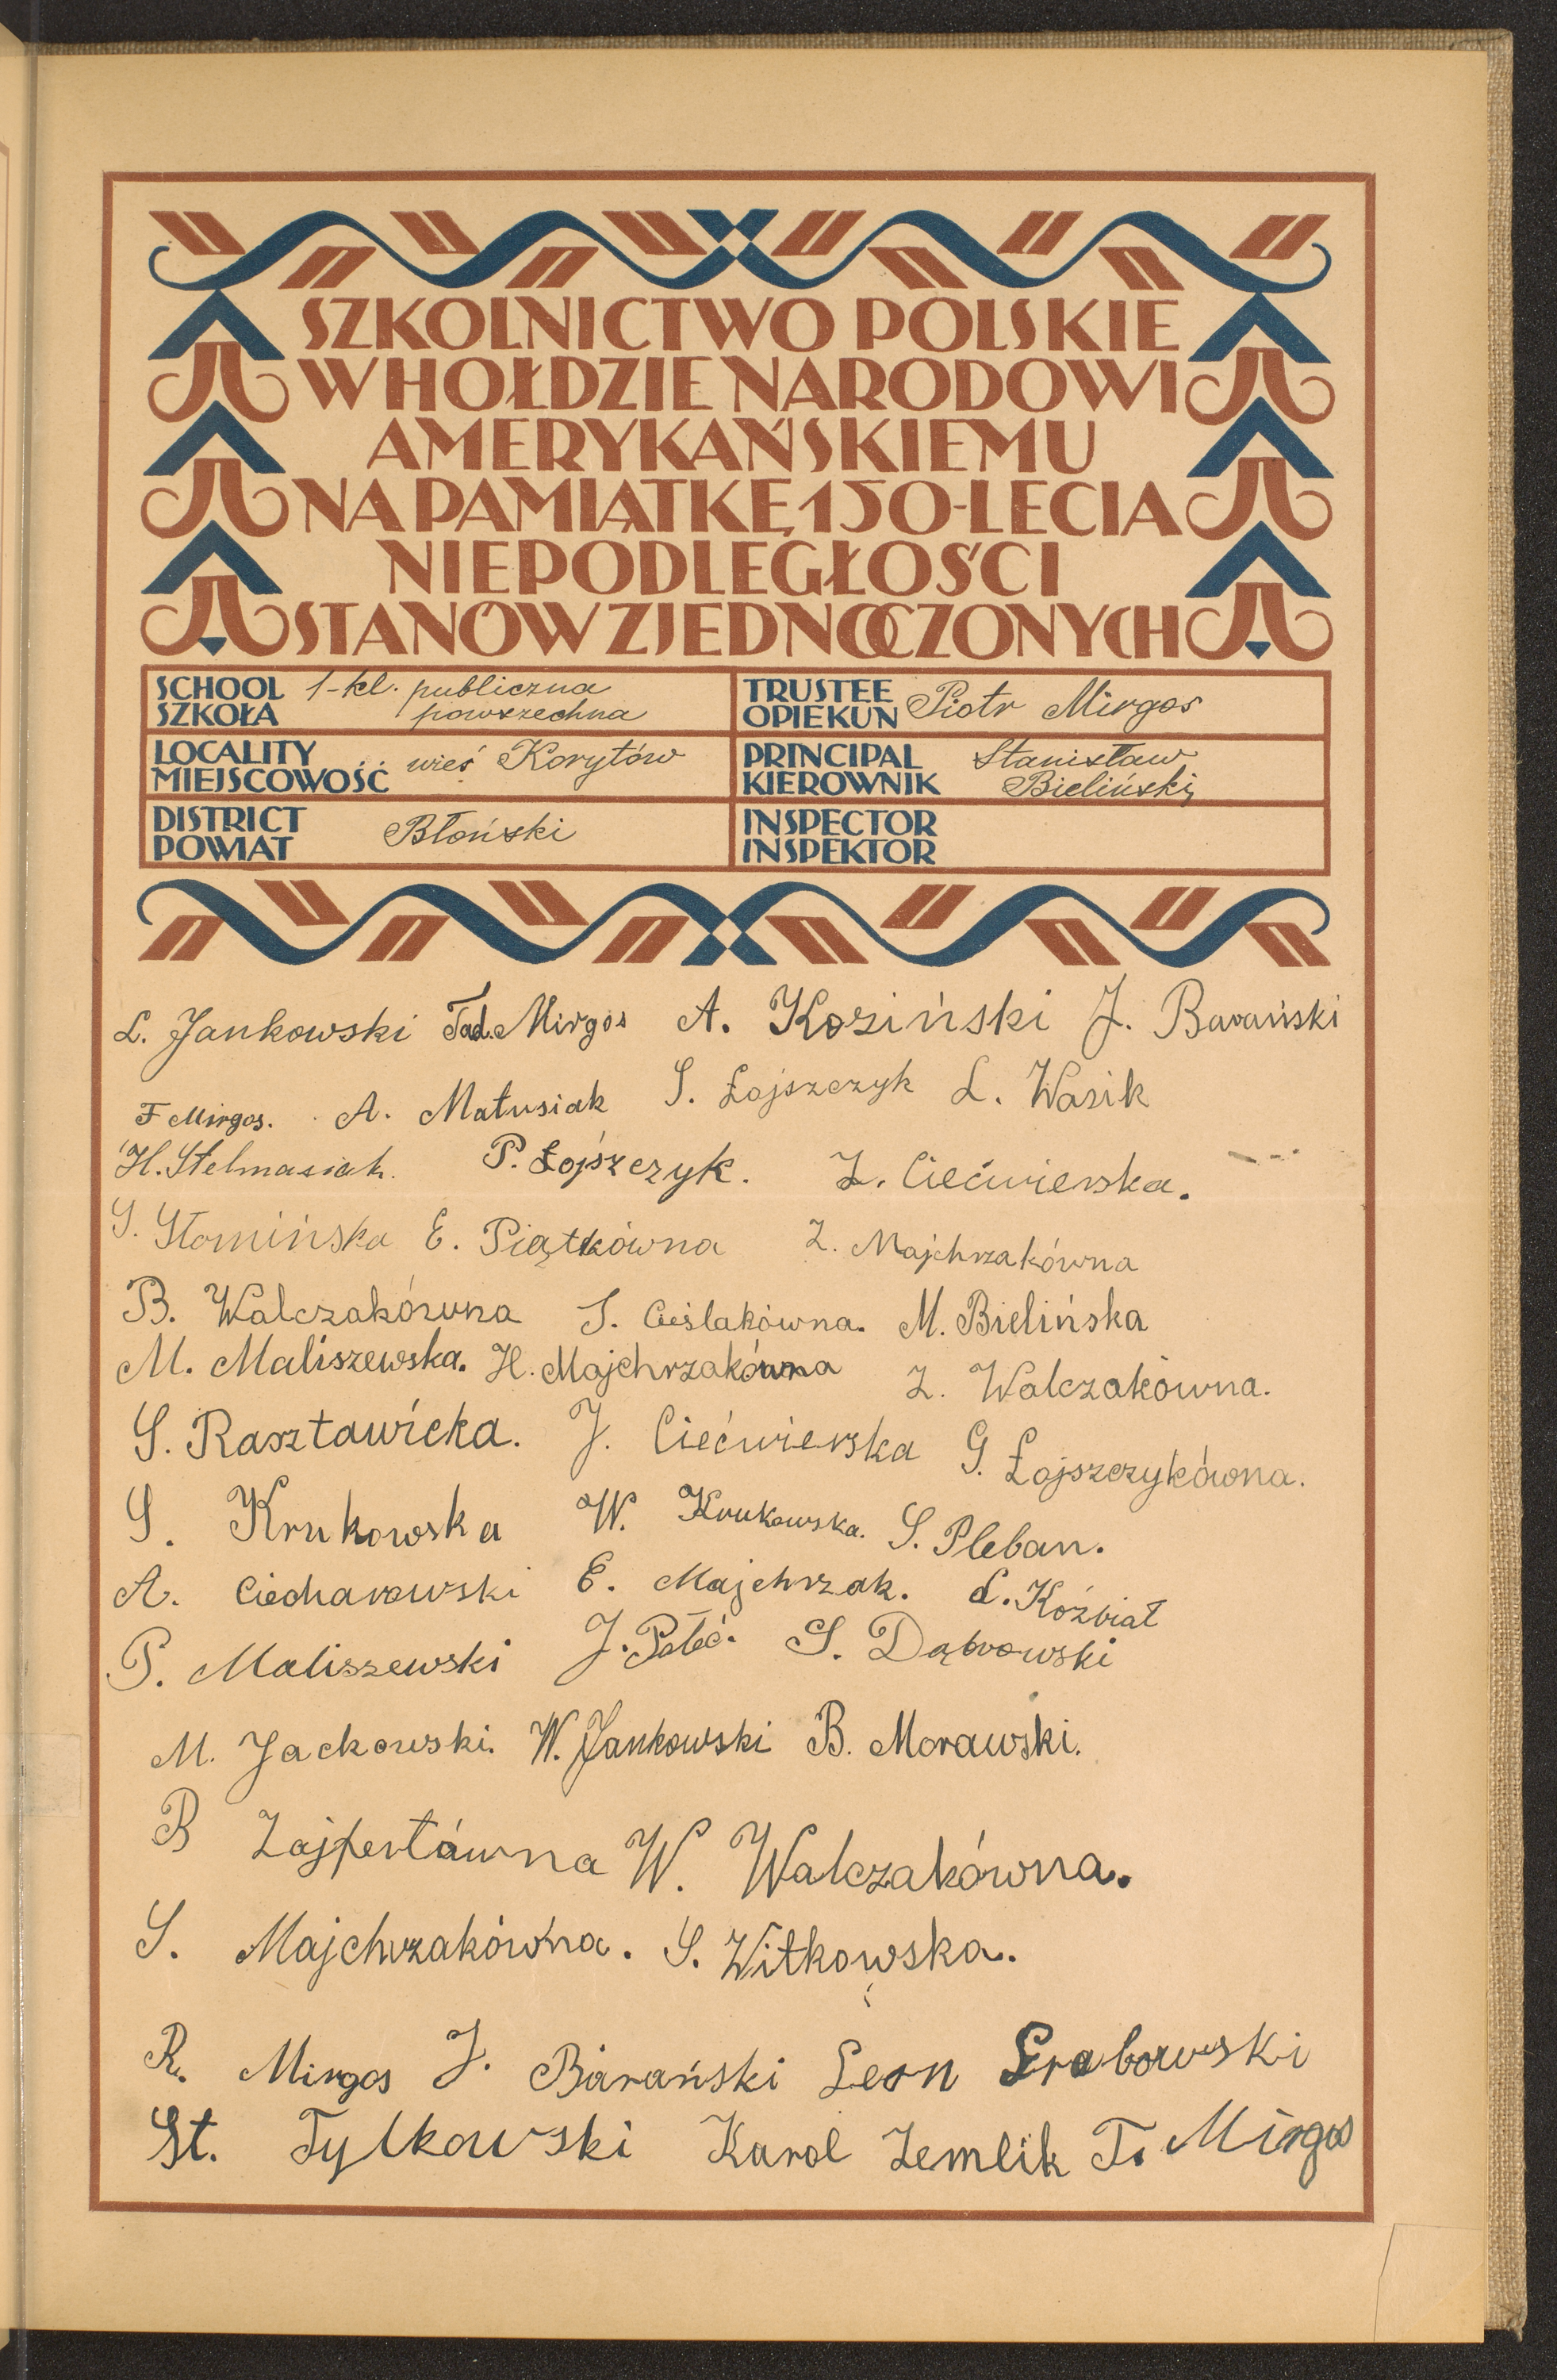 SZKOLNICTWO POLSKIE
W HOŁDZIE NARODOWI
AMERYKAŃSKIEMU
NA PAMIĄTKĘ 150-LECIA
NIEPODLEGŁOŚCI
STANÓW ZJEDNOCZONYCH
SCHOOL
SZKOŁA
1-kl. publiczna
powszechna
TRUSTEE
OPIEKUN
Piotr Mirgos
LOCALITY
MIEJSCOWOŚĆ
wieś Korytów
PRINCIPAL
KIEROWNIK
Stanisław
Bieliński
DISTRICT
POWIAT
Błoński
INSPECTOR
INSPEKTOR
L. Jankowski Tad. Mirgos A. Koziński J. Barański
F Mirgos. A. Matusiak S. Łojszczyk L. Wasik
H. Stelmasiak. P. Łojszczyk. Z. Ciećwierska.
S. Słomińska E. Piątkówna Z. Majchrzakówna
B. Walczakówna S. Cieślakówna. M. Bielińska
M. Maliszewska. H. Majchrzakówna Z. Walczakówna.
S. Rasztawicka. J. Ciećwierska G. Łojszczykówna.
S. Krukowska W. Krukowska. S. Pleban.
A. Ciecharowski E. Majchrzak. L. Koźbiał
P. Maliszewski J. S. Dąbrowski
M. Jackowski. W. Jankowski B. Morawski.
B Zajfertówna W. Walczakówna.
S. Majchrzakówna. S. Witkowska.
R. Mirgos J. Barański Leon Grabowski
St. Tylkowski Karol Zemlik T. Mirgos